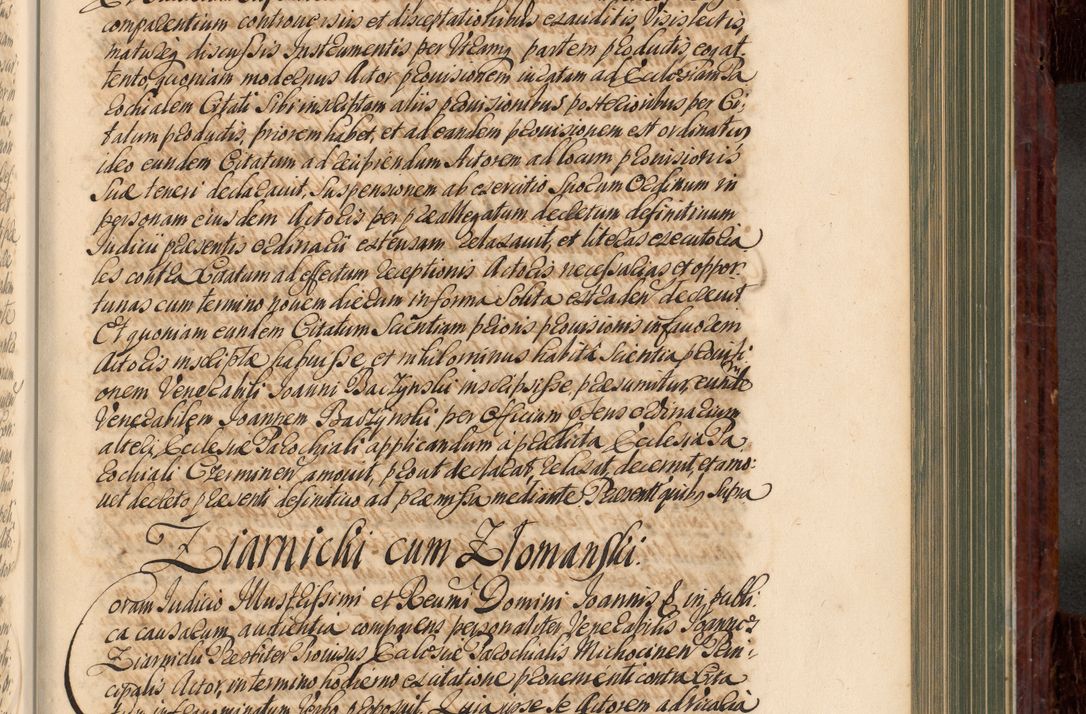 comparentium controversiis et disceptationibus exauditis, visis lectis,
matureq discussis Instrumentis per Utramq partem productis eoq at
tento, quoniam modernus Actor provisionem iuratam ad Ecclesiam Pa
rochialem Citati sibi inscriptam aliis provisionibus posterioribus per Ci,
tatum productis, priorem habet, et ad eandem provisionem est ordinatus
ideo eundem Citatum ad recipiendum Actorem ad locum provisionis
suæ teneri declaravit, suspensionem ab exercitio suorum Ordinum in
personam eiusdem Actoris per præallegatum decretum definitivum
Iudicii præsentis ordinarii extensam relaxavit, et literas executoria
les contra Citatum ad effectum receptionis Actoris necessarias et oppor,
tunas cum termino novem dierum in forma solita extraden decrevit
Et quoniam eundem Citatum scientiam prioris provisionis in favorem
Actoris inscriptæ habuisse, et nihilominus habita scientia provisi,
onem Venerabili Ioanni Baczynski inscripsisse, præsumitur, eunde
Venerabilem Ioannem Baczynski per Officium ordinarium
alteri Ecclesiæ Parochiali applicandum a prædicta Ecclesia Pa
rochiali Czerminen amovit, prout declarat, relaxat, decernit, et amo:
vet decreto præsenti definitivo ad præmissa mediante. Præsentibus quibus supra
Ziarnicki cum Złomanski:
Coram Iudicio Illustrissimi et Reverendissimi Domini Ioannis & in publi,
ca causarum audientia comparens personaliter Venerabilis Ioannes
Ziarnicki Præsbiter Provisus Ecclesiæ Parochialis Michocinen Prin,
cipalis Actor, in termino hodierno ex citatione proveniente contra Cita
tum infranominatum verbo proposuit. Quia ipse se Actorem ad Vicaria